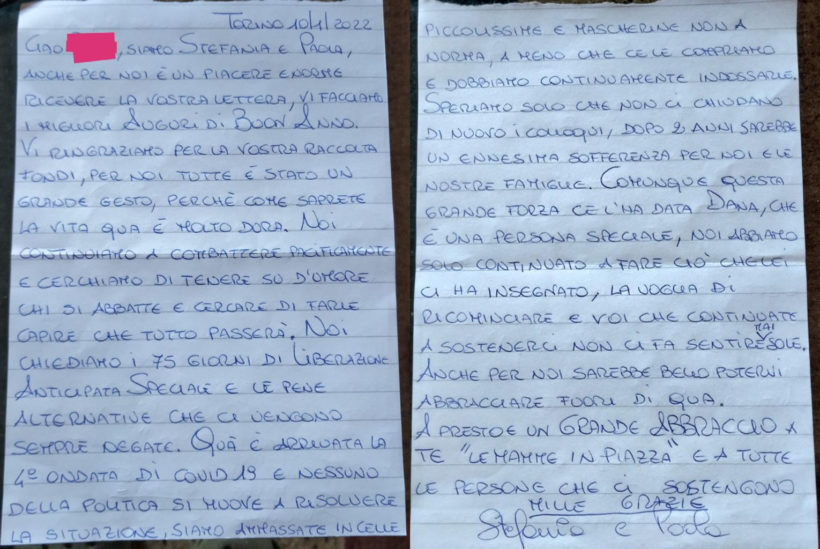 TORINO 10/1/2022
CIAO , SIAMO STEFANIA E PAOLA,
ANCHE PER NOI È UN PIACERE ENORME
RICEVERE LA VOSTRA LETTERA, VI FACCIAMO
I MIGLIORI AUGURI DI BUON ANNO.
VI RINGRAZIAMO PER LA VOSTRA RACCOLTA
FONDI, PER NOI TUTTE È STATO UN
GRANDE GESTO, PERCHÈ COME SAPRETE
LA VITA QUA È MOLTO DURA. NOI
CONTINUIAMO A COMBATTERE PACIFICAMENTE
E CERCHIAMO DI TENERE SU D'UMORE
CHI SI ABBATTE E CERCARE DI FARLE
CAPIRE CHE TUTTO PASSERÀ. NOI
CHIEDIAMO I 75 GIORNI DI LIBERAZIONE
ANTICIPATA SPECIALE E LE PENE
ALTERNATIVE CHE CI VENGONO
SEMPRE NEGATE. QUÀ È ARRIVATA LA
4° ONDATA DI COVID 19 E NESSUNO
DELLA POLITICA SI MUOVE A RISOLVERE
LA SITUAZIONE, SIAMO AMMASSATE IN CELLE
PICCOLISSIME E MASCHERINE NON A
NORMA, A MENO CHE CE LE COMPRIAMO
E DOBBIAMO CONTINUAMENTE INDOSSARLE.
SPERIAMO SOLO CHE NON CI CHIUDANO
DI NUOVO I COLLOQUI, DOPO 2 ANNI SAREBBE
UN ENNESIMA SOFFERENZA PER NOI E LE
NOSTRE FAMIGLIE. COMUNQUE QUESTA
GRANDE FORZA CE L'HA DATA DANA, CHE
È UNA PERSONA SPECIALE, NOI ABBIAMO
SOLO CONTINUATO A FARE CIÒ CHE LEI
CI HA INSEGNATO, LA VOGLIA DI
RICOMINCIARE E VOI CHE CONTINUATE
A SOSTENERCI NON CI FA SENTIRE MAI SOLE.
ANCHE PER NOI SAREBBE BELLO POTERVI
ABBRACCIARE FUORI DI QUA.
A PRESTO E UN GRANDE ABBRACCIO A
TE "LE MAMME IN PIAZZA" E A TUTTE
LE PERSONE CHE CI SOSTENGONO
MILLE GRAZIE
Stefania e Paola